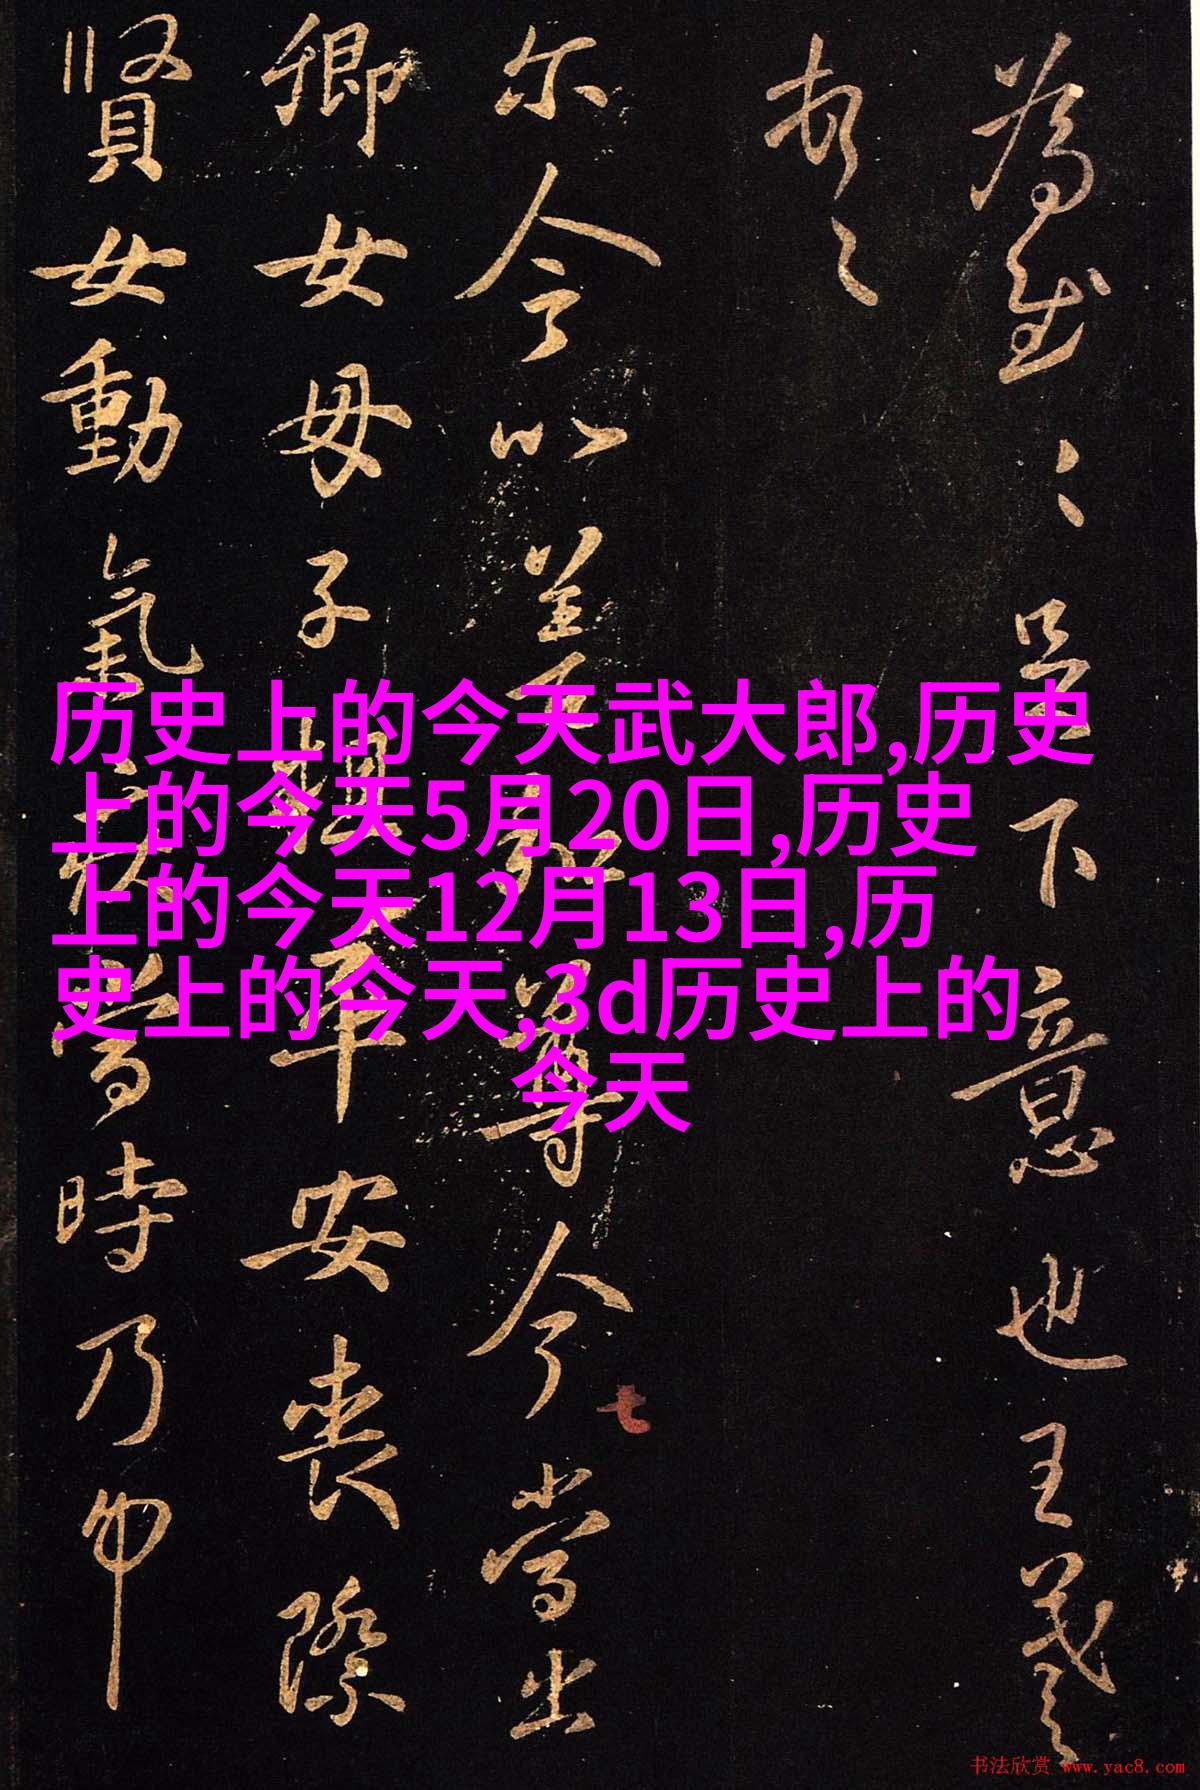 為慰
足下意也王羲
尔今以
等今當出
卿女母子
平安喪際
賢女動氣
當時乃
历史上的今天武大郎,历史
上的今天5月20日,历史
上的今天12月13日,历
史上的今天,3d历史上的
今天
七
书法欣赏 www.yac8.com